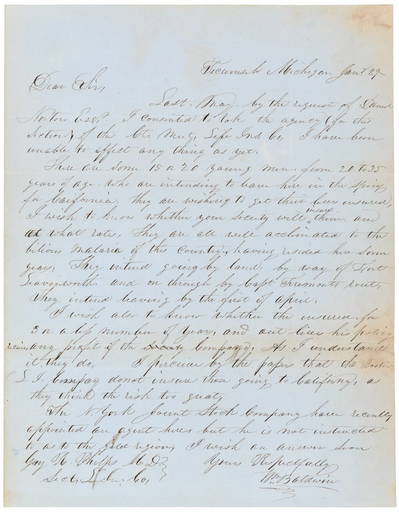 Tecumseh Michigan Jany 29
Dear Sir,
Last May by the request of
Esqr. I consented to take the agency (for this
section) of the Ct. Mu. Life Ins Co I have been
unable to effect any thing as yet.
There are some 15 or 20 young men from 20 to 35
years of age who are intending to leave here in the spring
for California, they are wishing to get their lives insured,
I wish to know whether your Society will insure them and
at what rates. They are all well acclimated to the
bilious malaria of this Country, having resided here some
years. They intend going by land by way of Fort
Leavenworth and on through by Capt Fremonts route,
They intend leaving by the first of April.
I wish also to know whether the insured for
2 or a less number of years, and out lives his policy
any profit of the Society (Company). As I understand
it they do. I perceive by the papers that the
L I Company do not insure those going to California, as
they think the risk too great,
The N. York Joint Stock Company have recently
appointed an agent here but he is not instructed
as to the gold region, I wish an answer soon
Guy R. Phelps M.D. Yours Respectfully
Sec. Co. Wm Baldwin